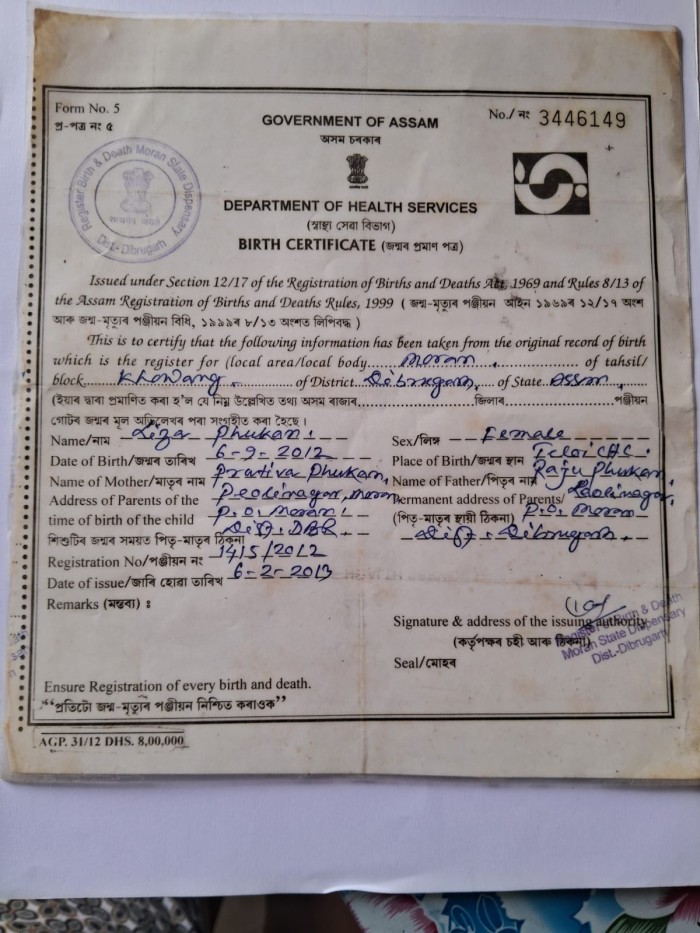 Form No. 5
প্ৰ-পত্ৰ নং ৫
No./ নং 3446149
GOVERNMENT OF ASSAM
অসম চৰকাৰ
Register Birth & Death Moran State Dispensary
Dist.-Dibrugarh
सत्यमेव जयते
DEPARTMENT OF HEALTH SERVICES
(স্বাস্থ্য সেৱা বিভাগ)
BIRTH CERTIFICATE (জন্মৰ প্ৰমাণ পত্ৰ)
Issued under Section 12/17 of the Registration of Births and Deaths Act, 1969 and Rules 8/13 of
the Assam Registration of Births and Deaths Rules, 1999 ( জন্ম-মৃত্যুৰ পঞ্জীয়ন আইন ১৯৬৯ৰ ১২/১৭ অংশ
আৰু জন্ম-মৃত্যুৰ পঞ্জীয়ন বিধি, ১৯৯৯ৰ ৮/১৩ অংশত লিপিবদ্ধ )
This is to certify that the following information has been taken from the original record of birth
which is the register for (local area/local body Moran of tahsil/
block Khowang of District Dibrugarh of State Assam
(ইয়াৰ দ্বাৰা প্ৰমাণিত কৰা হ'ল যে নিম্ন উল্লেখিত তথ্য অসম ৰাজ্যৰ জিলাৰ পঞ্জীয়ন
গোটৰ জন্মৰ মূল অভিলেখৰ পৰা সংগৃহীত কৰা হৈছে।
Name/নাম Liza Phukan Sex/লিঙ্গ Female
Date of Birth/জন্মৰ তাৰিখ 6-9-2012 Place of Birth/জন্মৰ স্থান Teloi CHC.
Name of Mother/মাতৃৰ নাম Prativa Phukan, Name of Father/পিতৃৰ নাম Raju Phukan
Address of Parents of the Peolinagar, Moran Permanent address of Parents/ Peolinagar,
time of birth of the child P.O. Moran (পিতৃ-মাতৃৰ স্থায়ী ঠিকনা) P.O. Moran
শিশুটিৰ জন্মৰ সময়ত পিতৃ-মাতৃৰ ঠিকনা Dist. DBR Dist. Dibrugarh.
Registration No/পঞ্জীয়ন নং 1415/2012
Date of issue/জাৰি হোৱা তাৰিখ 6-2-2013
Remarks (মন্তব্য) :
Signature & address of the issuing authority
(কৰ্তৃপক্ষৰ চহী আৰু ঠিকনা)
Register of Birth & Death
Moran State Dispensary
Dist.-Dibrugarh
Seal/মোহৰ
Ensure Registration of every birth and death.
“প্ৰতিটো জন্ম-মৃত্যুৰ পঞ্জীয়ন নিশ্চিত কৰাওক”
AGP. 31/12 DHS. 8,00,000